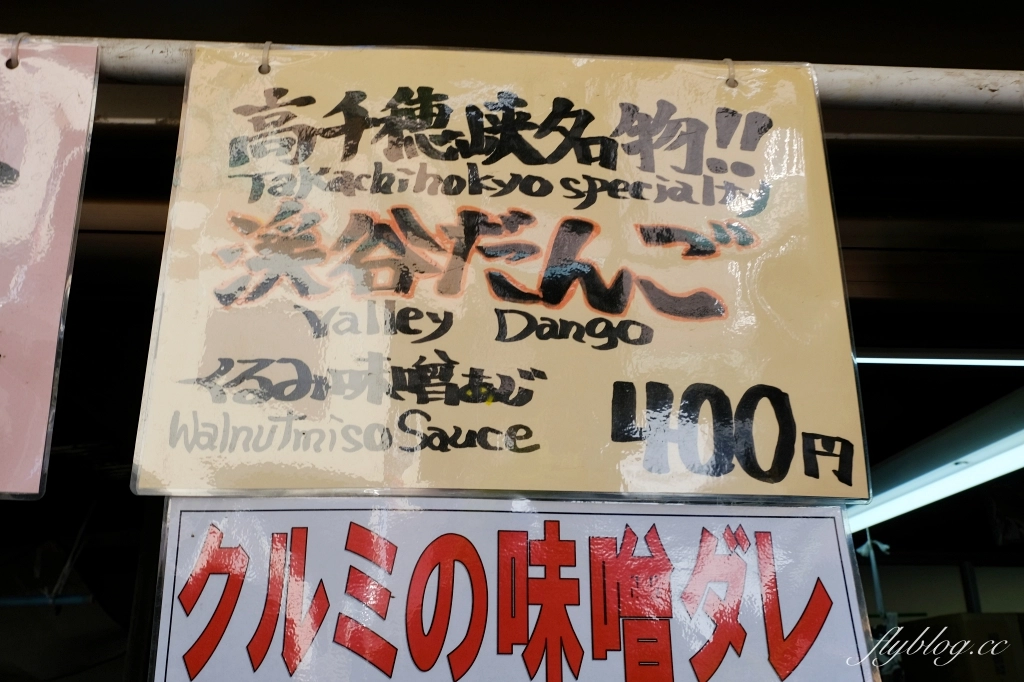 高千穂峡名物!!
Takachihokyo specialty
渓谷だんご
Valley Dango
くるみ味噌あじ
Walnut miso Sauce
400円
クルミの味噌ダレ
flyblog.cc